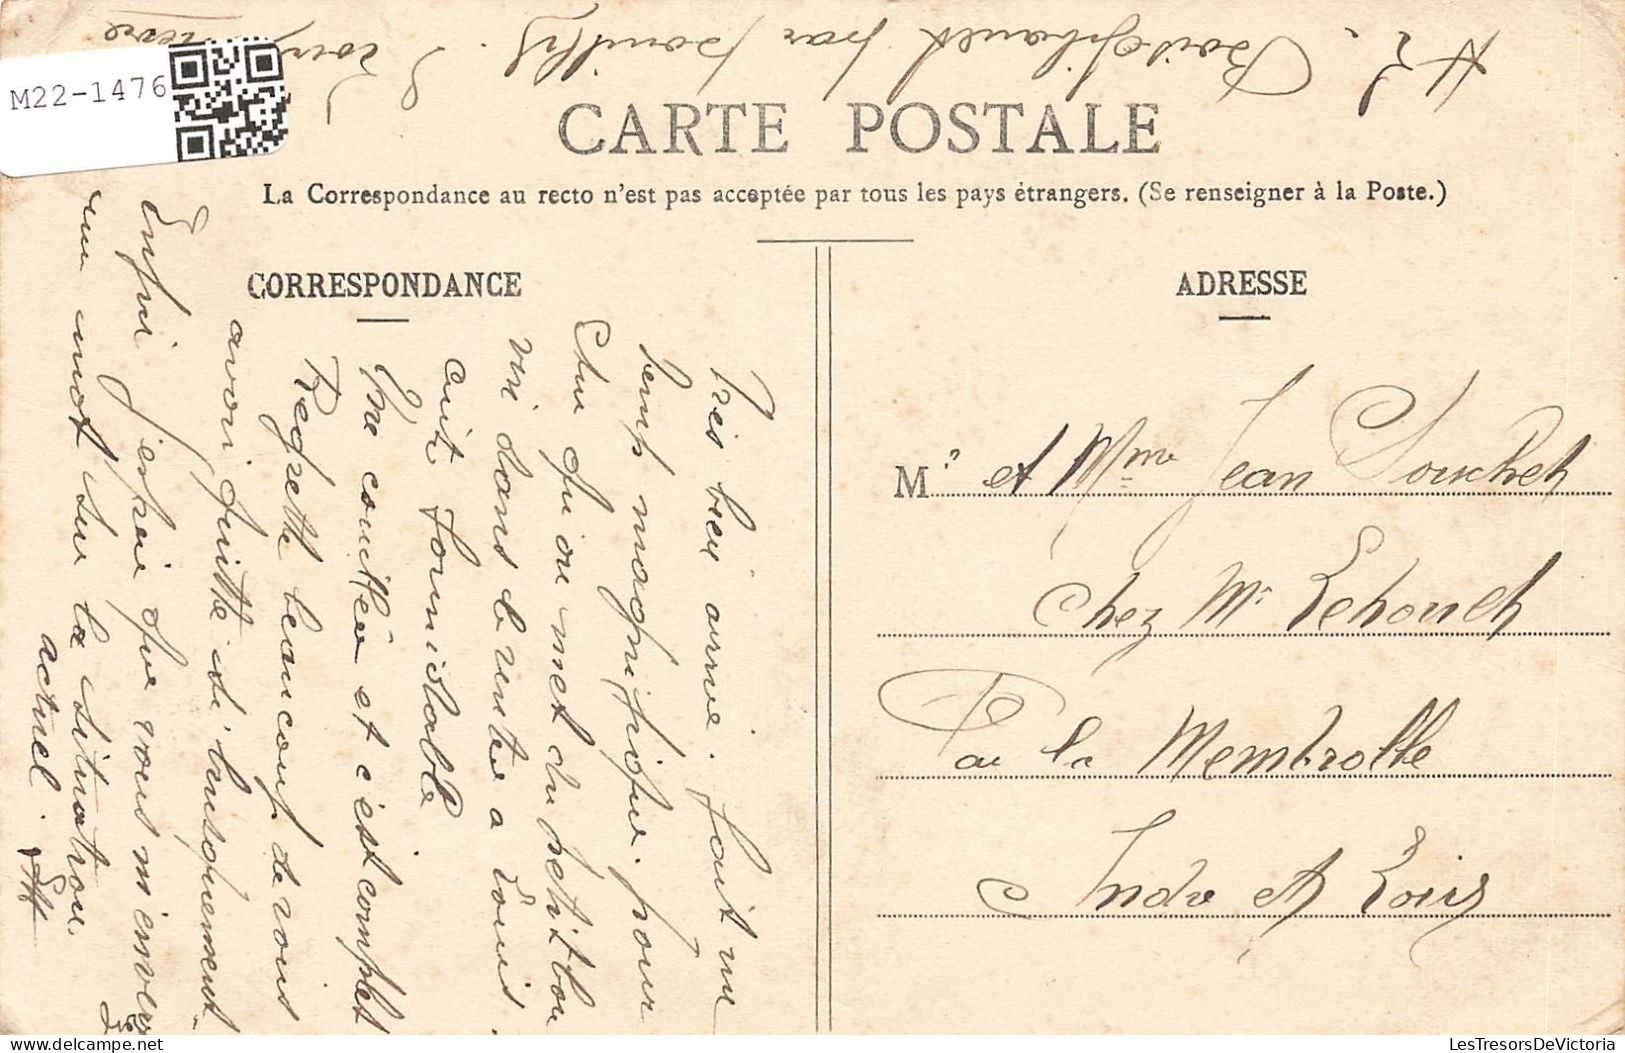 M22-1476
CARTE POSTALE
La Correspondance au recto n'est pas acceptée par tous les pays étrangers. (Se renseigner à la Poste.)
CORRESPONDANCE
ADRESSE
M.r et Mme Jean Souchet
Chez Mr Lehouch
Par la Membrolle
Indre et Loire
Très bien arrivé. fait un
temps magnifique. pour
chu qu'on met du petit
vin dans le ventre a Louis.
cuit formidable
Une couillée et c'est complet
Regrette beaucoup de vous
avoir quitté si brusquement.
Enfin j'espère que vous m'enverrez
un mot sur la situation
actuel.
par